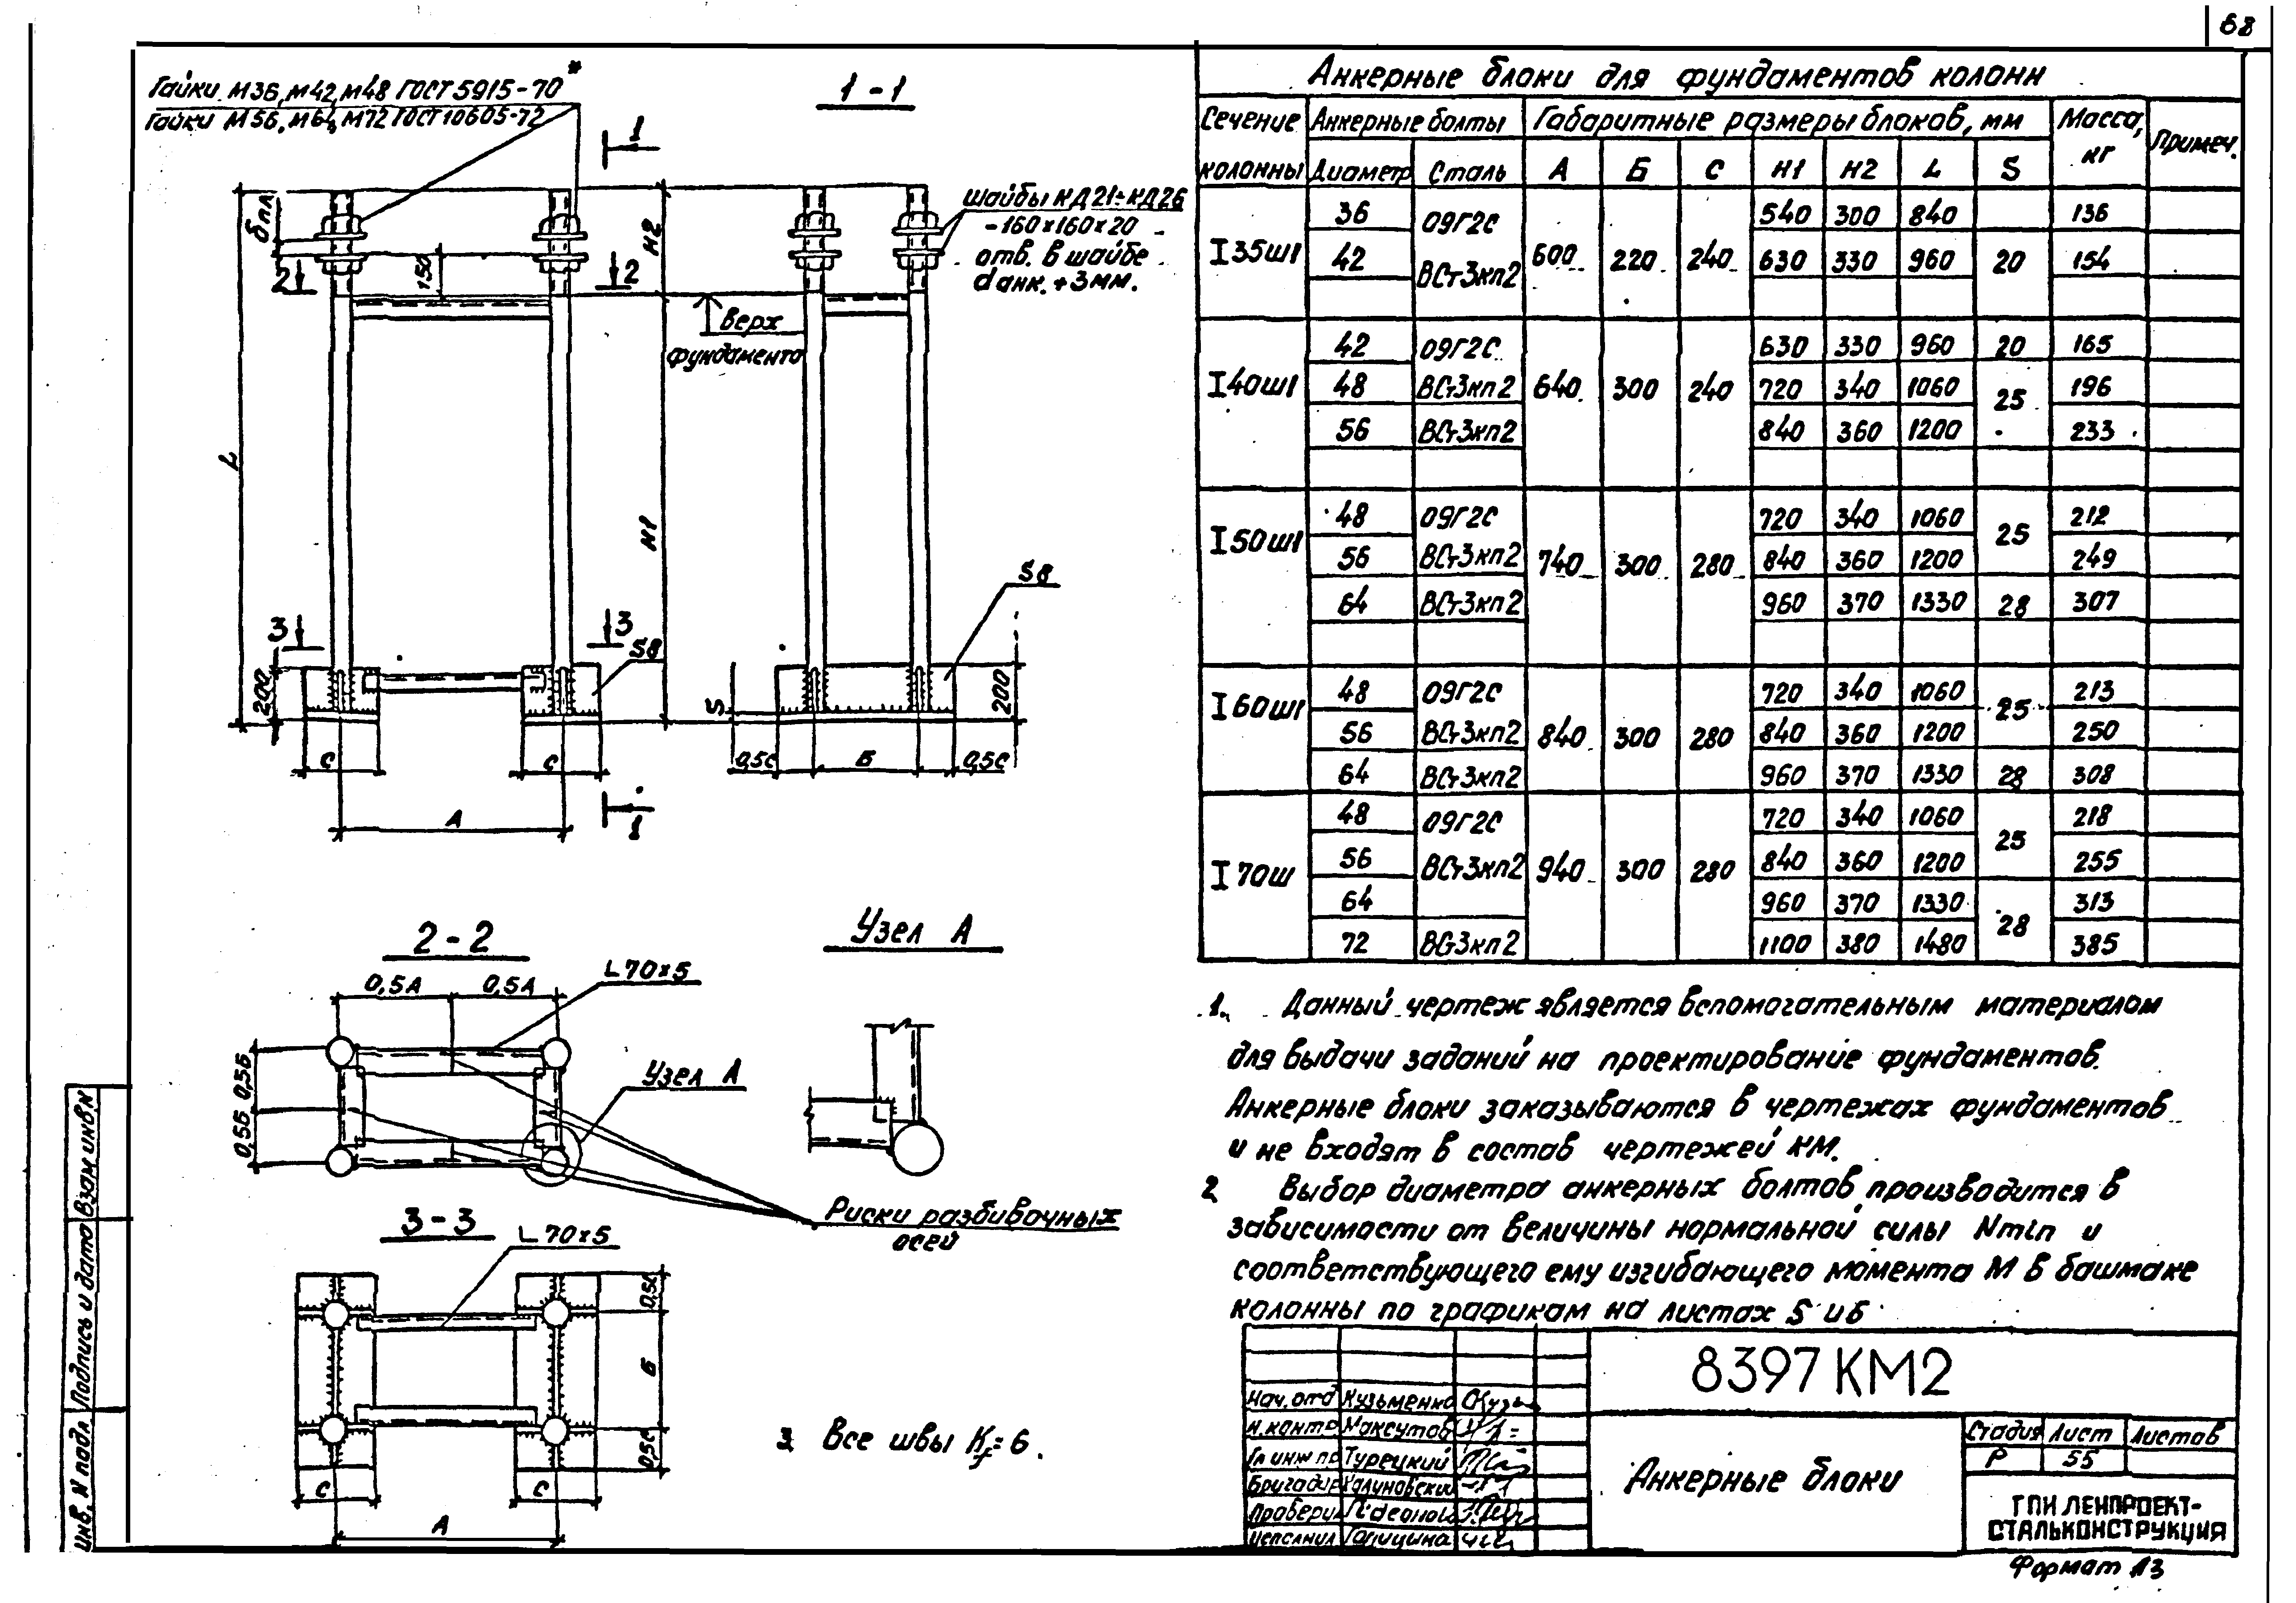 68
Гайки М36, М42, М48 ГОСТ 5915-70*
Гайки М56, М64, М72 ГОСТ 10605-72
1-1
1
шайбы КД21÷КД26
-160×160×20
отв. в шайбе
dанк. +3мм.
δпл
2
2
150
Н2
верх
фундамента
L
Н1
3
3
S8
S8
200
S
200
С
С
0,5С
Б
0,5С
А
1
2-2
0,5А
0,5А
L70×5
0,5Б
0,5Б
Узел А
Узел А
Риски разбивочных
осей
3-3
L70×5
0,5С
Б
0,5С
С
С
А
Все швы Kf=6.
Анкерные блоки для фундаментов колонн
Сечение колонны
Анкерные болты
Габаритные размеры блоков, мм
Масса, кг
Примеч.
Диаметр Сталь А Б С Н1 Н2 L S
I35Ш1 600 220 240
36 09Г2С 540 300 840 136
42 ВСт3кп2 630 330 960 20 154
I40Ш1 640 300 240
42 09Г2С 630 330 960 20 165
48 ВСт3кп2 720 340 1060 25 196
56 ВСт3кп2 840 360 1200 233
I50Ш1 740 300 280
48 09Г2С 720 340 1060 25 212
56 ВСт3кп2 840 360 1200 249
64 ВСт3кп2 960 370 1330 28 307
I60Ш1 840 300 280
48 09Г2С 720 340 1060 25 213
56 ВСт3кп2 840 360 1200 250
64 ВСт3кп2 960 370 1330 28 308
I70Ш 940 300 280
48 09Г2С 720 340 1060 25 218
56 ВСт3кп2 840 360 1200 255
64 960 370 1330 28 313
72 ВСт3кп2 1100 380 1480 385
1. Данный чертеж является вспомогательным материалом
для выдачи заданий на проектирование фундаментов.
Анкерные блоки заказываются в чертежах фундаментов
и не входят в состав чертежей КМ.
2 Выбор диаметра анкерных болтов производится в
зависимости от величины нормальной силы Nmin и
соответствующего ему изгибающего момента М в башмаке
колонны по графикам на листах 5 и 6
8397КМ2
Нач. отд Кузьменко
Н. контр Максутов
Гл инж пр Турецкий
Бригадир
Проверил
Исполнил Голицына
Анкерные блоки
Стадия Лист Листов
Р 55
ГПИ ЛЕНПРОЕКТ-
СТАЛЬКОНСТРУКЦИЯ
Формат А3
Взам инв N
Подпись и дата
Инв. N подл